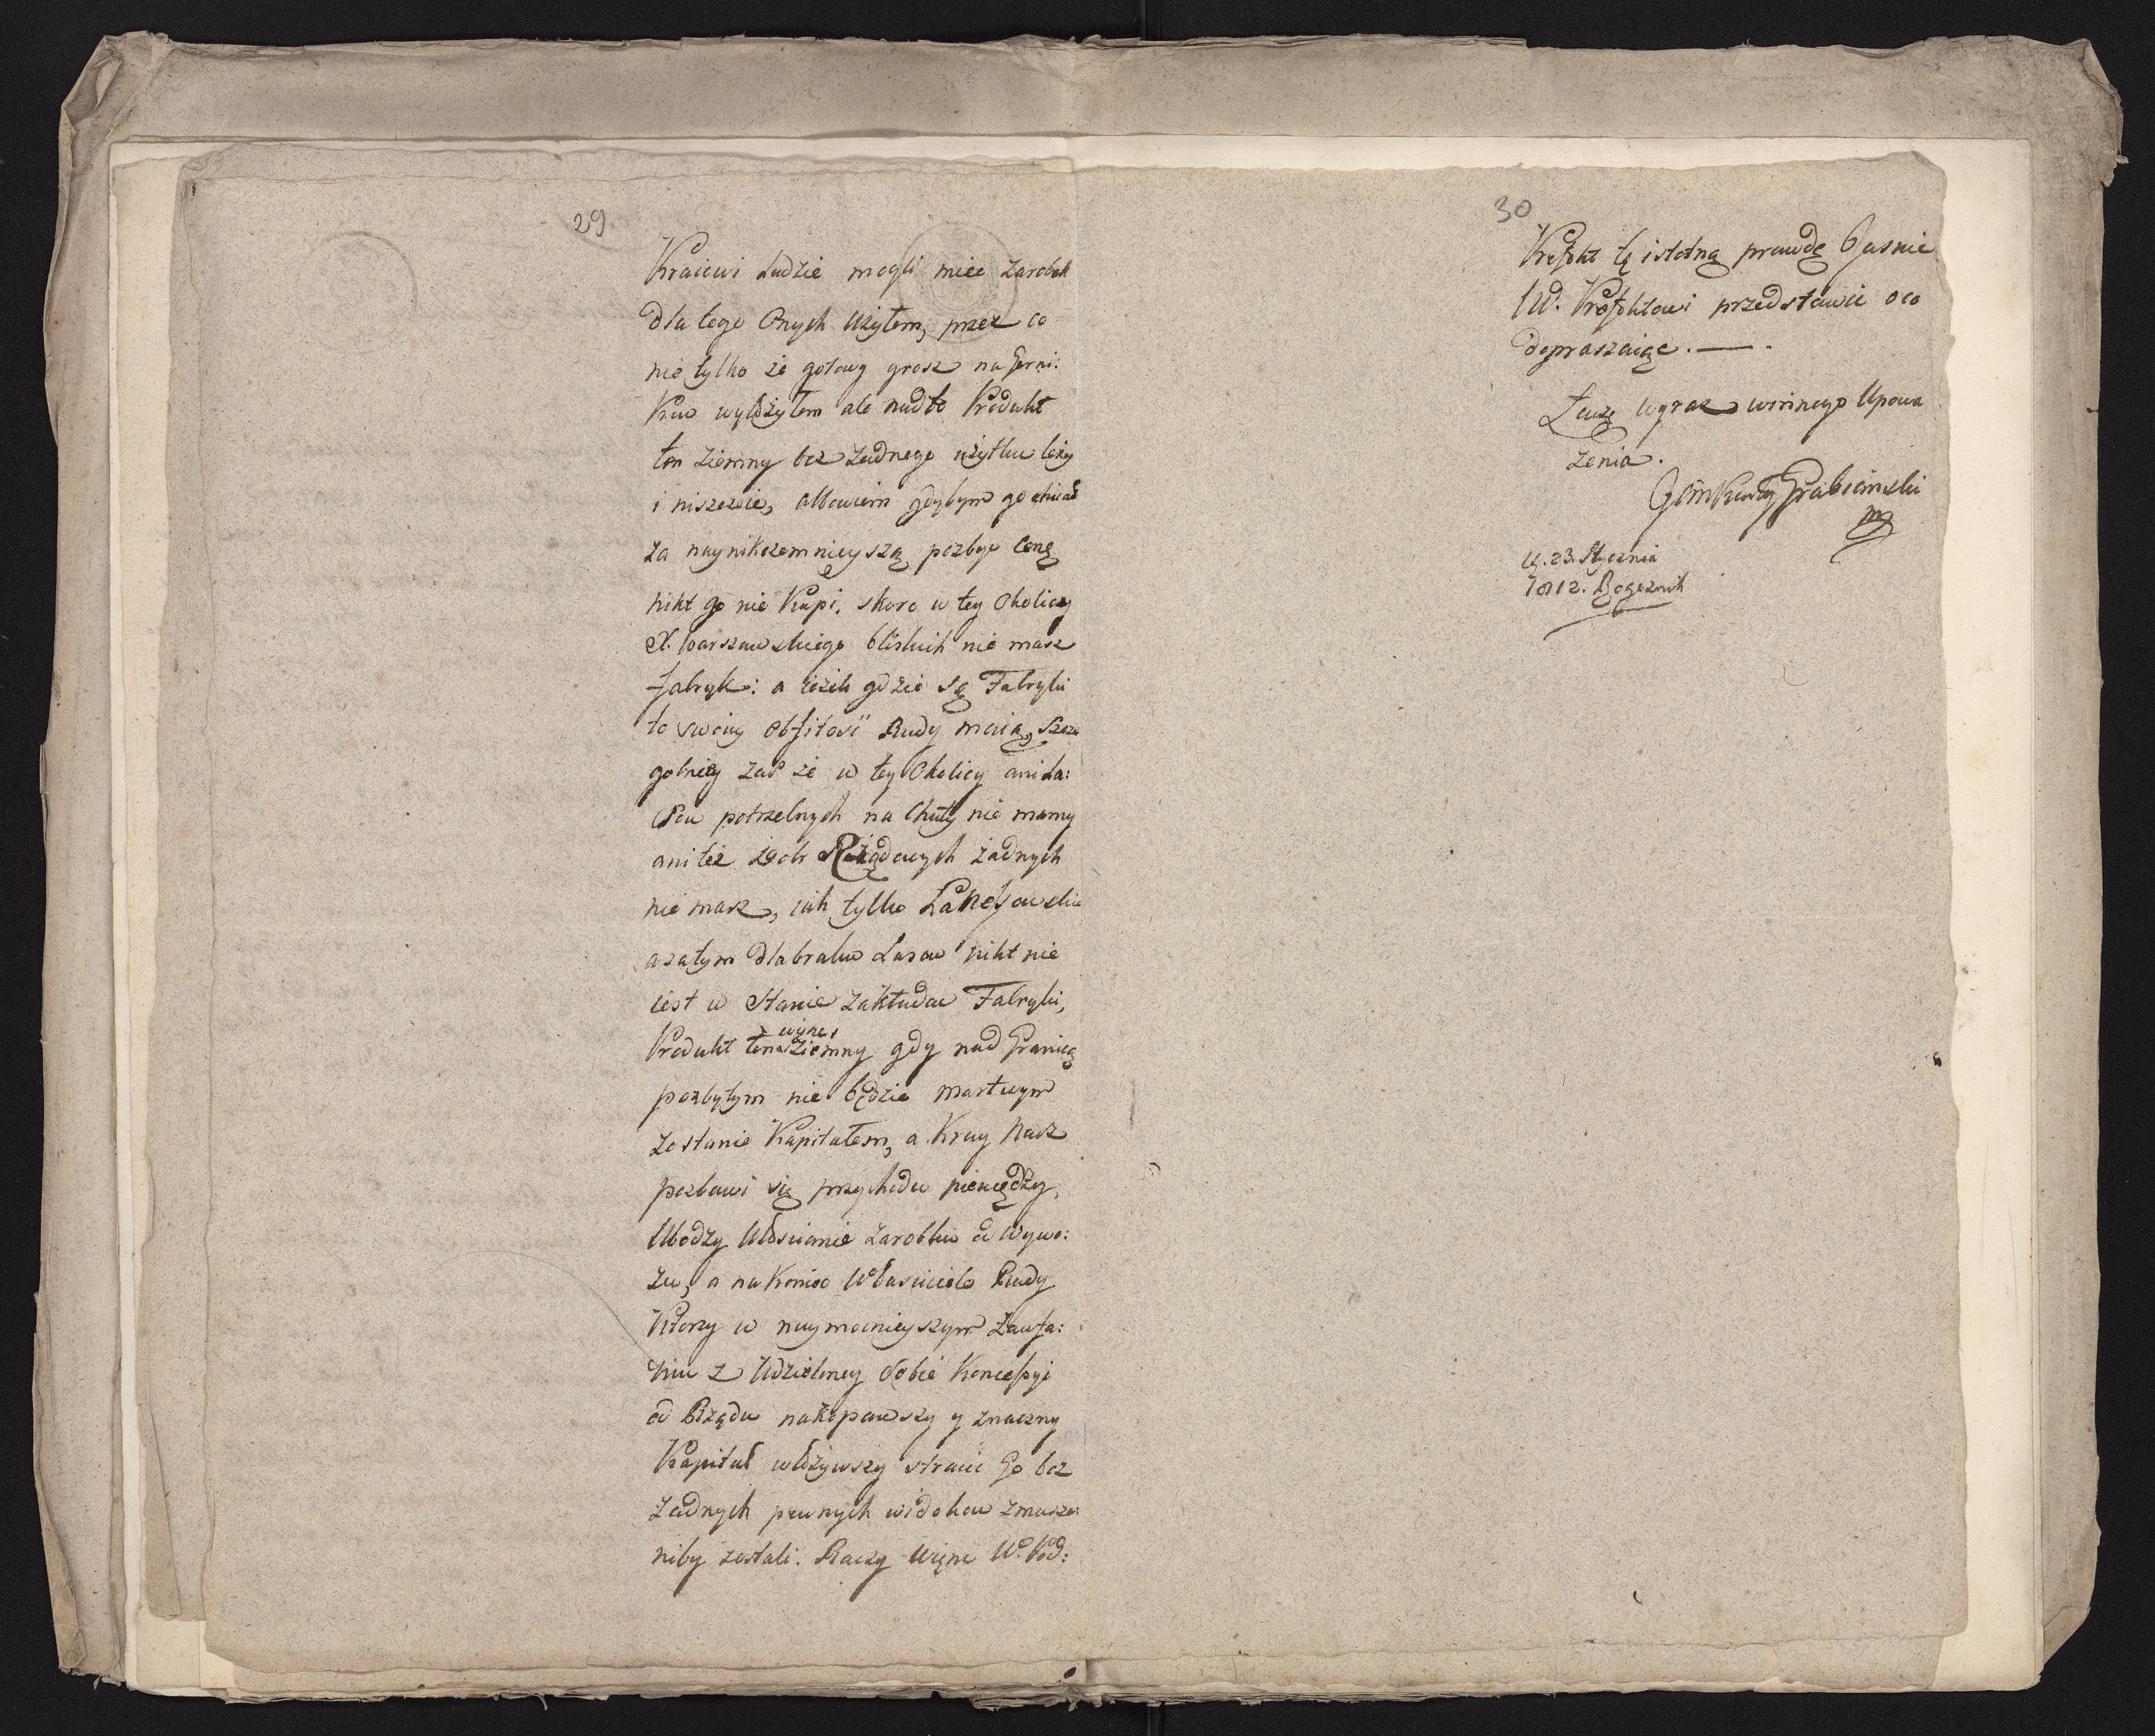 29
Kraiowi Ludzie mogli miec zarobek
dla tego Onych Użyłem, przez co
nie tylko że gotowy grosz na Gorni:
kow wyłożyłem ale nadto Produkt
ten ziemny bez żadnego użytku leży
i niszczeie, albowiem gdybym go chciał
za naynikczemnieyszą pozbyc Cenę
nikt go nie Kupi, skoro w tey Okolicy
X. Warszawskiego bliskich nie masz
fabryk: a ieżeli gdzie są Fabryki
to swoiey obfitość Rudy maią, Szcze
golniey zaś że w tey Okolicy ani La:
sow potrzebnych na Chuty nie mamy
ani też Dobr Rządowych żadnych
nie masz, iak tylko
a zatym dla braku Lasow nikt nie
iest w Stanie zakładac Fabryki,
więnc
Produkt ten Ziemny gdy nad Granicę
pozbytym nie będzie martwym
zostanie Kapitałem, a Kray Nasz
pozbawi się przychodu pieniędzy,
Ubodzy Włościanie zarobku od Wywo:
zu, a na Koniec Własciciele Rudy
Ktorzy w naymocnieyszym Zaufa:
niu z Udzieloney Sobie Koncessyi
od Rządu nakopawszy y znaczny
Kapitał włożywszy stracic Go bez
żadnych pewnych widokow zmusze
niby zostali. Raczy więnc W. Pod:
30
Prefekt tę istotną prawdę Jasnie
W. Prefektowi przedstawic o co
dopraszaiąc. —.
Łączę wyraz winnego Upowa
żenia.
Grabianski
mp
d. 23. Stycznia
1812.